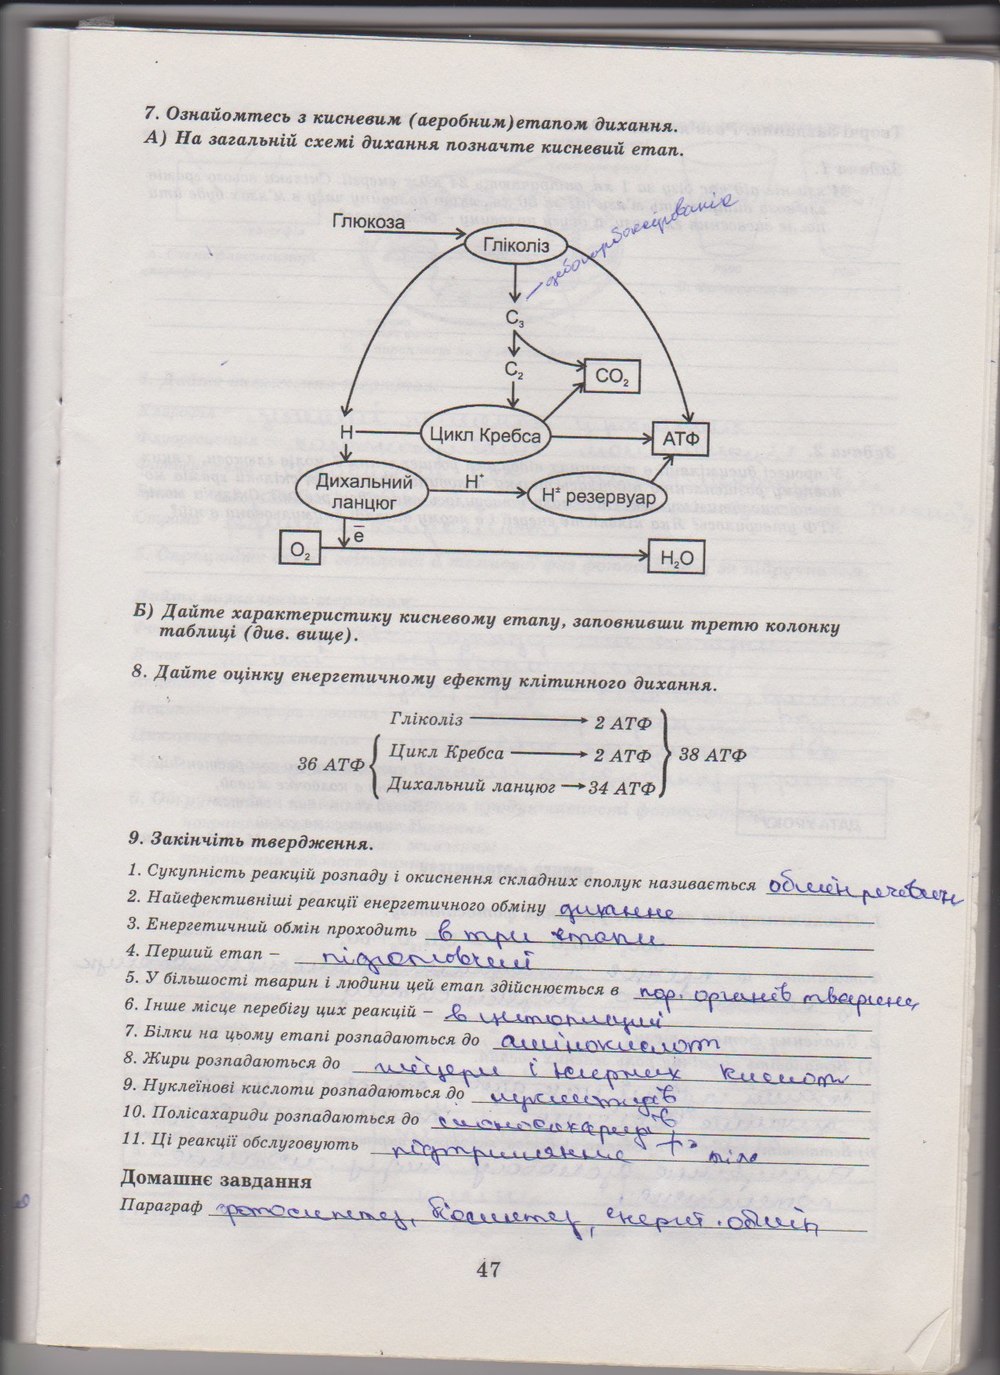 7. Ознайомтесь з кисневим (аеробним)етапом дихання.
А) На загальній схемі дихання позначте кисневий етап.
Глюкоза
Гліколіз
C₃
C₂
CO₂
H
Цикл Кребса
АТФ
Дихальний
ланцюг
H⁺
H⁺ резервуар
e̅
O₂
H₂O
Б) Дайте характеристику кисневому етапу, заповнивши третю колонку
таблиці (див. вище).
8. Дайте оцінку енергетичному ефекту клітинного дихання.
Гліколіз 2 АТФ
36 АТФ Цикл Кребса 2 АТФ 38 АТФ
Дихальний ланцюг 34 АТФ
9. Закінчіть твердження.
1. Сукупність реакцій розпаду і окиснення складних сполук називається обмін речовин
2. Найефективніші реакції енергетичного обміну дихання
3. Енергетичний обмін проходить в три етапи
4. Перший етап – підготовчий
5. У більшості тварин і людини цей етап здійснюється в пор. органів тварини,
6. Інше місце перебігу цих реакцій – в цитоплазмі
7. Білки на цьому етапі розпадаються до амінокислот
8. Жири розпадаються до гліцерину і жирних кислот
9. Нуклеїнові кислоти розпадаються до нуклеотидів
10. Полісахариди розпадаються до моносахаридів
11. Ці реакції обслуговують підтримання t° тіла
Домашнє завдання
Параграф фотосинтез, біосинтез, енерг. обмін
47